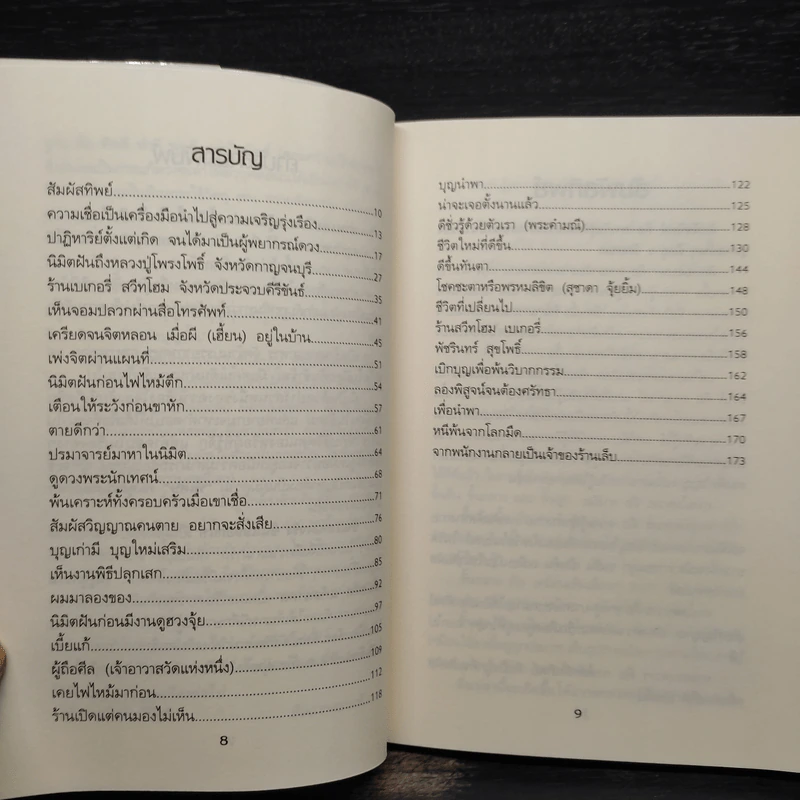 สารบัญ
สัมผัสทิพย์..........10
ความเชื่อเป็นเครื่องมือนำไปสู่ความเจริญรุ่งเรือง..........13
ปาฏิหาริย์ตั้งแต่เกิด จนได้มาเป็นผู้พยากรณ์ดวง..........17
นิมิตฝันถึงหลวงปู่โพรงโพธิ์ จังหวัดกาญจนบุรี..........27
ร้านเบเกอรี่ สวีทโฮม จังหวัดประจวบคีรีขันธ์..........35
เห็นจอมปลวกผ่านสื่อโทรศัพท์..........41
เครียดจนจิตหลอน เมื่อผี (เฮี้ยน) อยู่ในบ้าน..........45
เพ่งจิตผ่านแผนที่..........51
นิมิตฝันก่อนไฟไหม้ตึก..........54
เตือนให้ระวังก่อนขาหัก..........57
ตายดีกว่า..........61
ปรมาจารย์มาหาในนิมิต..........64
ดูดวงพระนักเทศน์..........68
พ้นเคราะห์ทั้งครอบครัวเมื่อเขาเชื่อ..........71
สัมผัสวิญญาณคนตาย อยากจะสั่งเสีย..........76
บุญเก่ามี บุญใหม่เสริม..........80
เห็นงานพิธีปลุกเสก..........85
ผมมาลองของ..........92
นิมิตฝันก่อนมีงานดูฮวงจุ้ย..........97
เบี้ยแก้..........105
ผู้ถือศีล (เจ้าอาวาสวัดแห่งหนึ่ง)..........109
เคยไฟไหม้มาก่อน..........112
ร้านเปิดแต่คนมองไม่เห็น..........118
8
บุญนำพา..........122
น่าจะเจอตั้งนานแล้ว..........125
ดีชั่วรู้ด้วยตัวเรา (พระคำมณี)..........128
ชีวิตใหม่ที่ดีขึ้น..........130
ดีขึ้นทันตา..........144
โชคชะตาหรือพรหมลิขิต (สุชาดา จุ้ยยิ้ม)..........148
ชีวิตที่เปลี่ยนไป..........150
ร้านสวีทโฮม เบเกอรี่..........156
พัชรินทร์ สุขโพธิ์..........158
เบิกบุญเพื่อพ้นวิบากกรรม..........162
ลองพิสูจน์จนต้องศรัทธา..........164
เพื่อนำพา..........167
หนีพ้นจากโลกมืด..........170
จากพนักงานกลายเป็นเจ้าของร้านเล็บ..........173
9